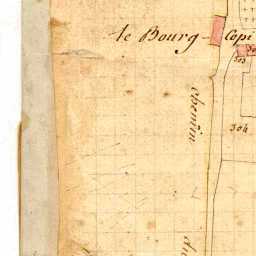 le Bourg - Copi
303
304
chemin
du